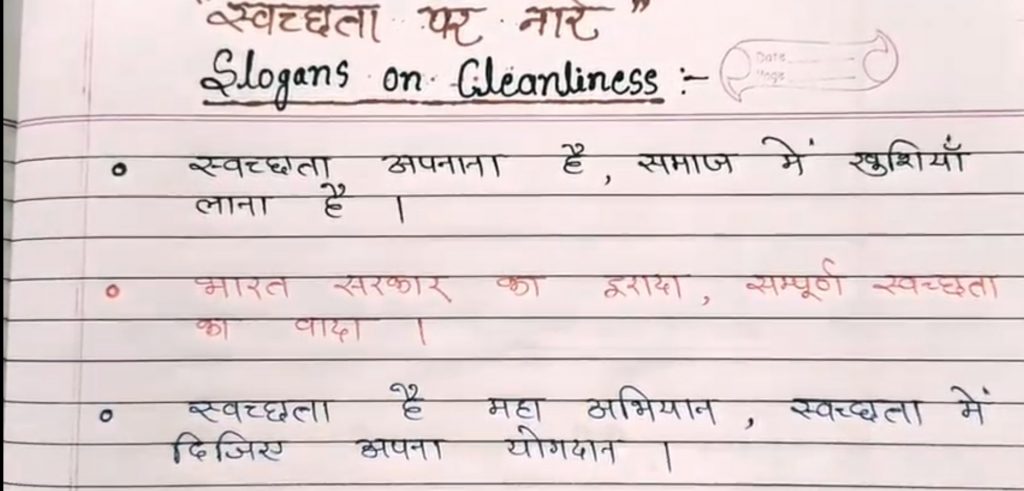 "स्वच्छता पर नारे"
Slogans on Cleanliness :-
Date
Page
• स्वच्छता अपनाना है, समाज में खुशियाँ
लाना है ।
• भारत सरकार का इरादा, सम्पूर्ण स्वच्छता
का वादा ।
• स्वच्छता है महा अभियान, स्वच्छता में
दिजिए अपना योगदान ।